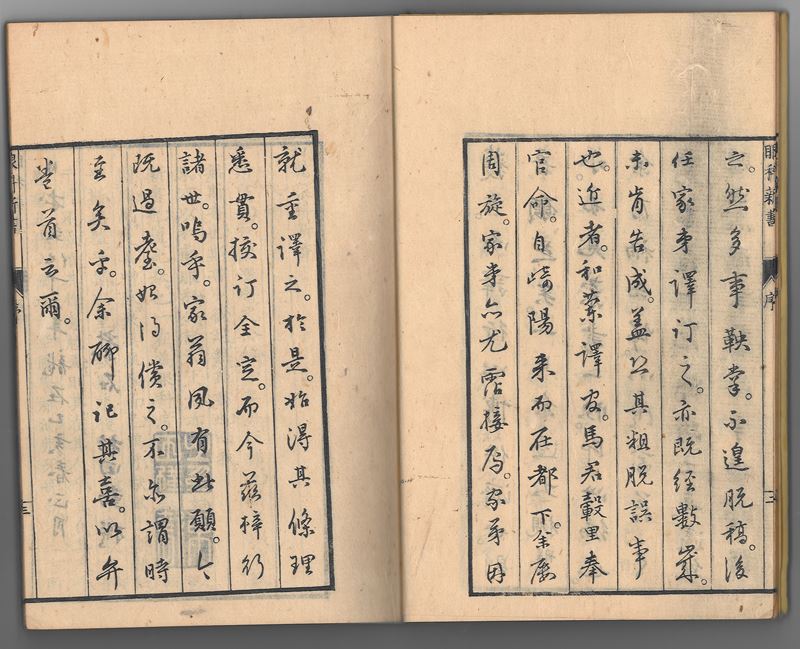 眼科新書 序 三
之。然多事鞅掌。不遑脱稿。後
任家弟譯訂之。亦既經數歲。
未肯告成。蓋以其粗脱誤事
也。近者。和蘭譯官。馬君轂里奉
官命。自崎陽来而在都下。余屡
周旋。家弟亦尤霑接焉。家弟因
就重譯之。於是。始得其條理
悉貫。挍訂全定。而今茲梓行
諸世。嗚乎。家翁夙有此願。今
既過耋。始得償之。不亦謂時
至矣乎。余聊記其喜。以弁
巻首云爾。